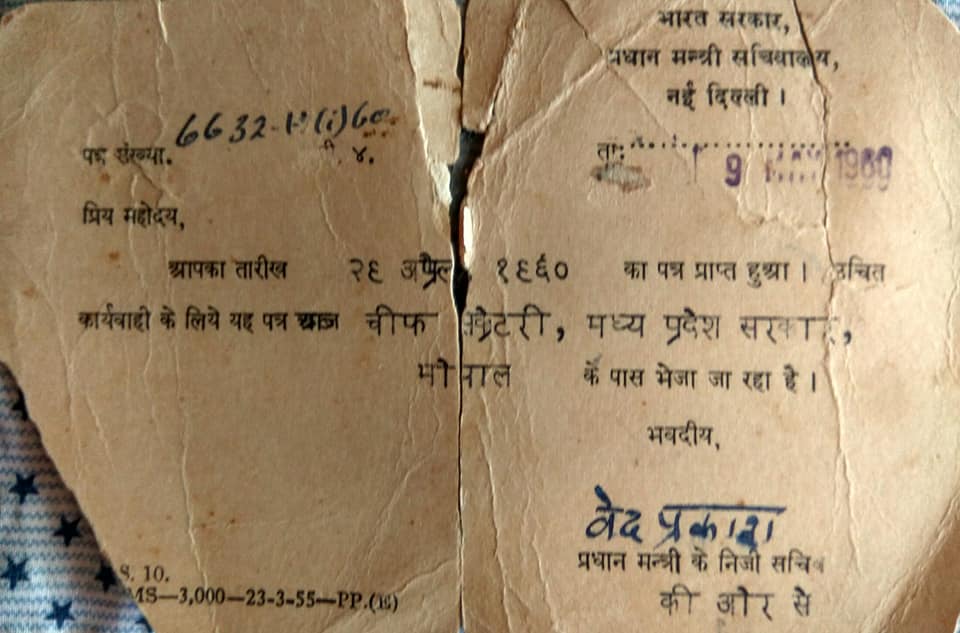 भारत सरकार,
प्रधान मन्त्री सचिवालय,
नई दिल्ली ।
6632-
पत्र संख्या.
४.
ता:
9 MAY 1960
प्रिय महोदय,
आपका तारीख २९ अप्रैल १९६० का पत्र प्राप्त हुआ । उचित
कार्यवाही के लिये यह पत्र आज चीफ सेक्रेटरी, मध्य प्रदेश सरकार,
भोपाल के पास भेजा जा रहा है ।
भवदीय,
वेद प्रकाश
प्रधान मन्त्री के निजी सचिव
की ओर से
S. 10.
MS—3,000—23-3-55—PP.